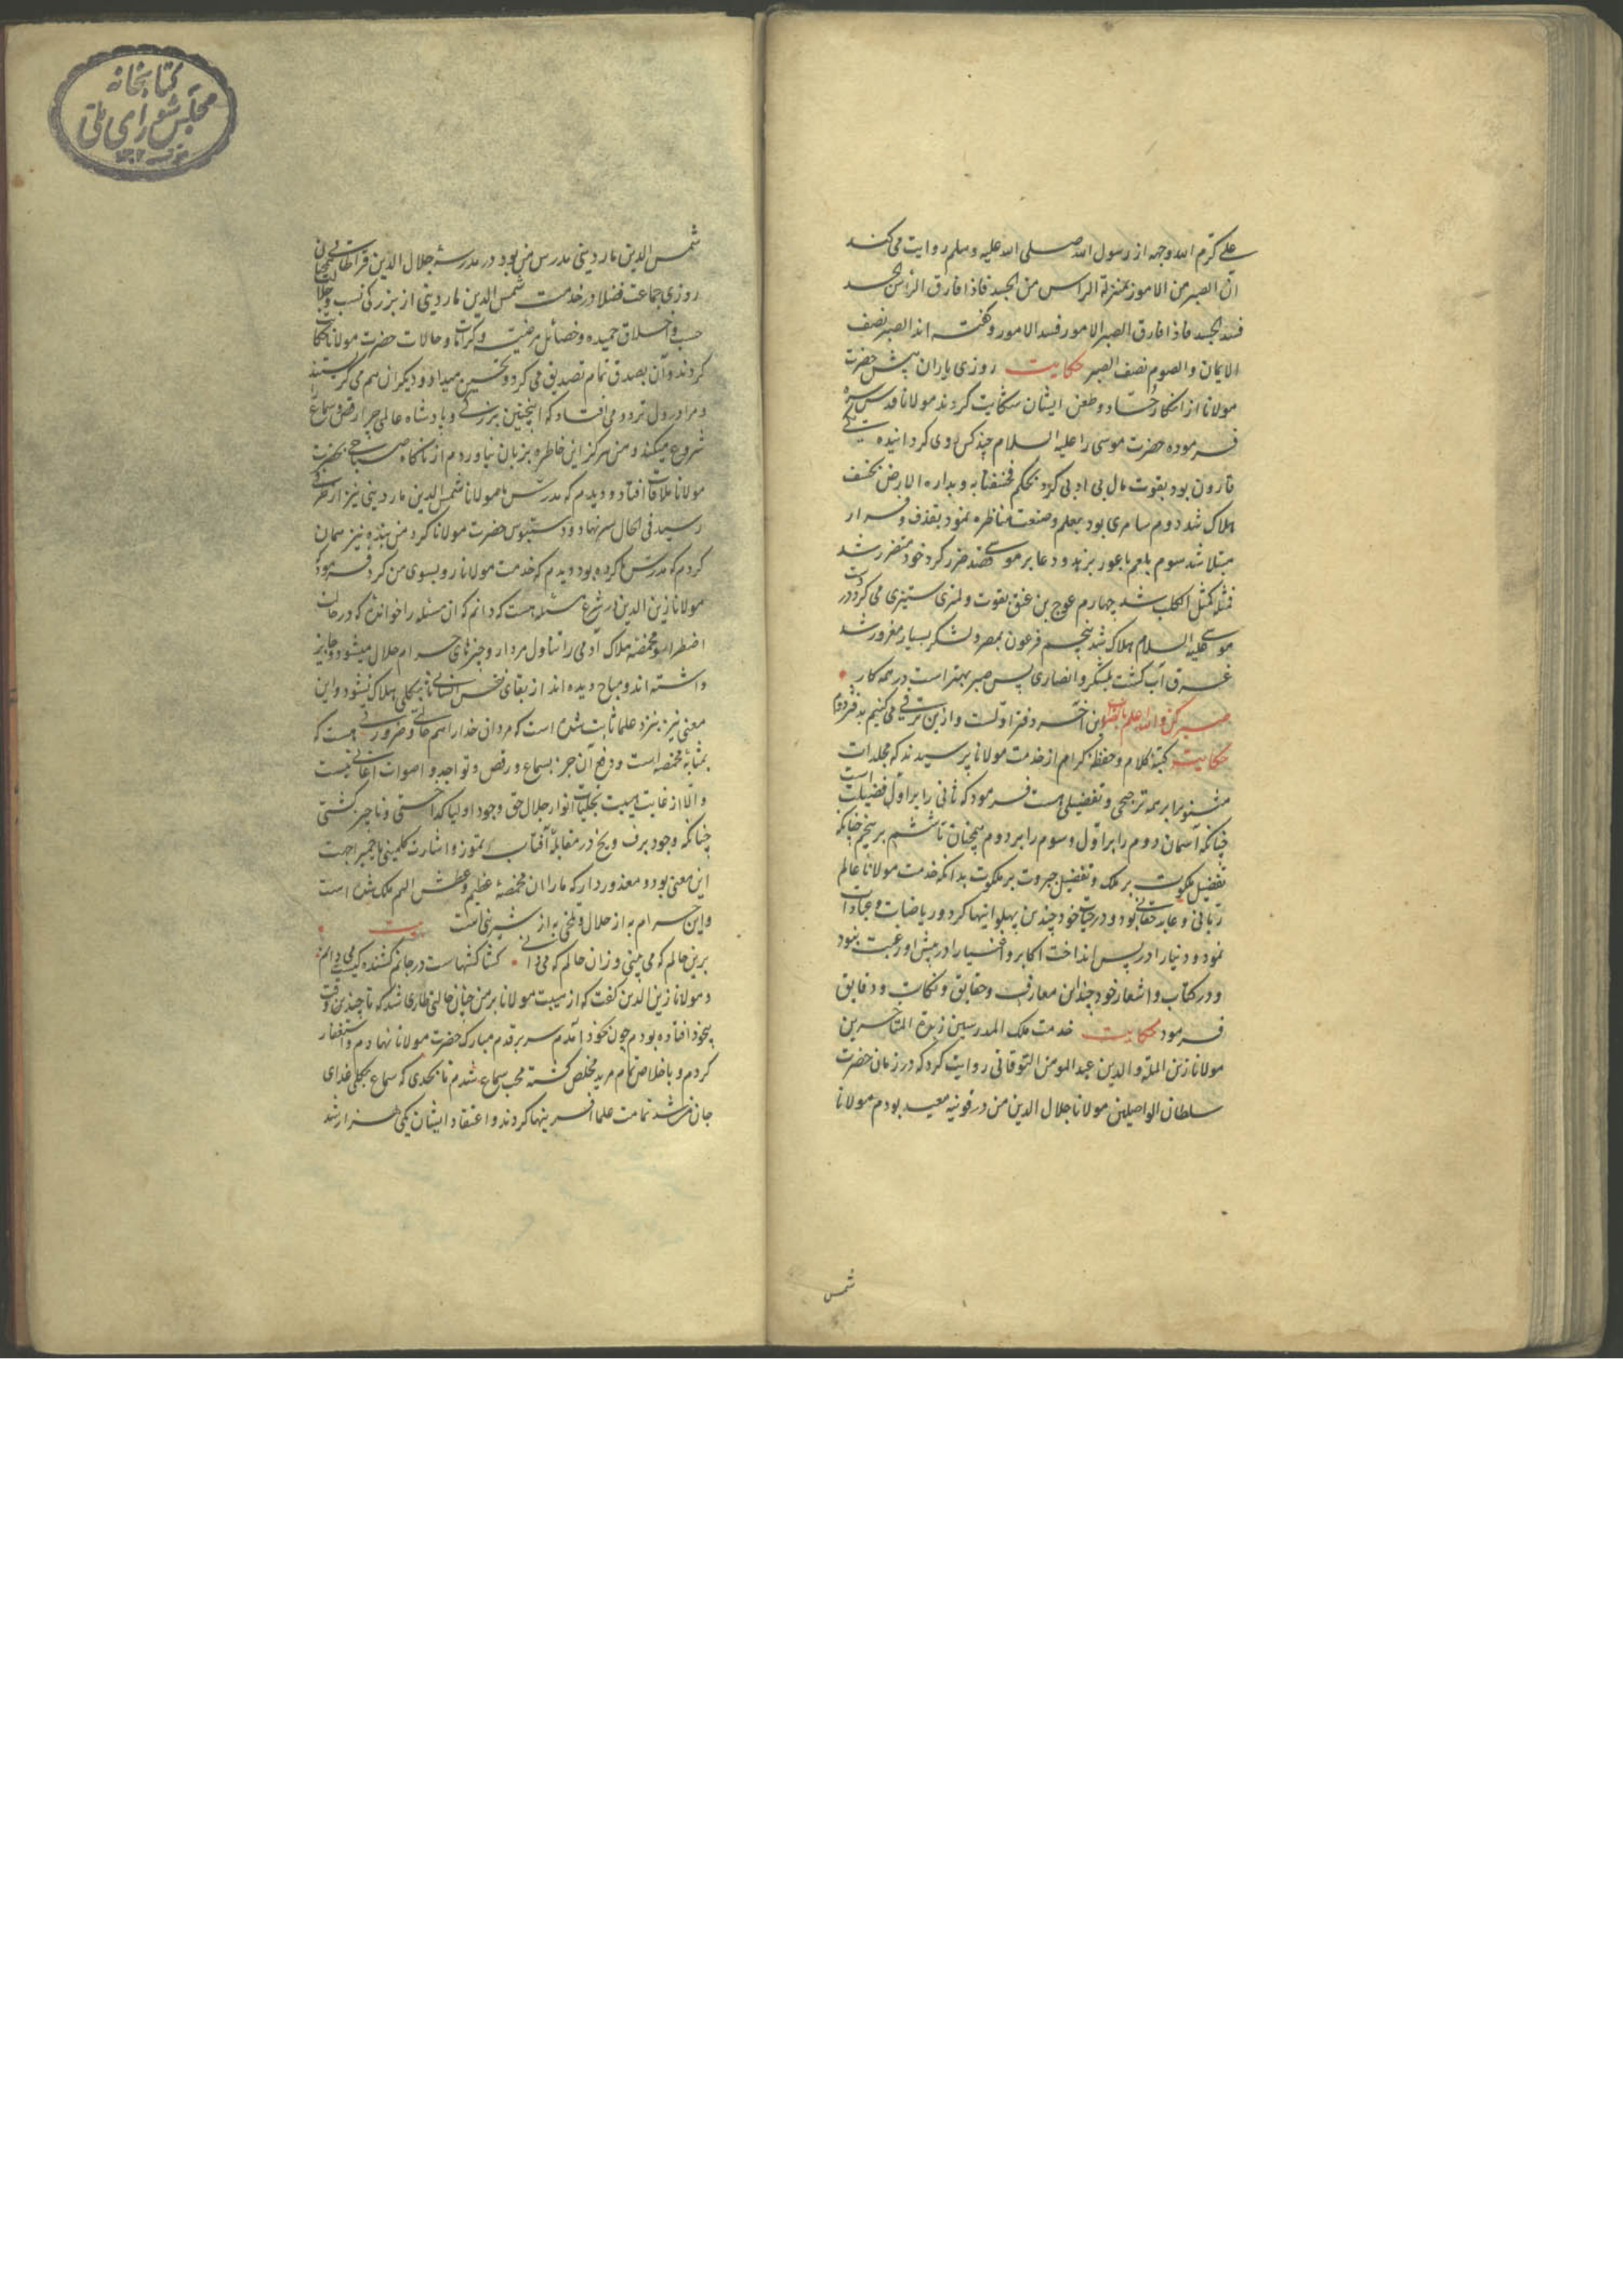 علی کرّم الله وجهه از رسول الله صلی الله علیه وسلم روایت می کند
انّ الصبر من الامور بمنزلة الراس من الجسد فاذا فارق الرأس الجسد
فسد الجسد فاذا فارق الصبر الامور فسد الامور و گفته اند الصبر نصف
الایمان والصوم نصف الصبر حکایت روزی یاران پیش حضرت
مولانا از انکار حسّاد و طعن ایشان شکایت کردند مولانا قدس سره
فرموده حضرت موسی را علیه السلام چند کس روی کردانیده
قارون بود بقوت مال بی ادبی کرد بحکم فخسفنا به وبداره الارض بخسف
هلاک شد دوم سامری بود بعلم و صنعت مناظره نمود بقذف و فرار
مبتلا شد سوم بلعم باعور بزهد و دعا بر موسی قصد ضرر کرد خود متضرر شد
فمثله کمثل الکلب شد چهارم عوج بن عنق بقوت و لمتری ستیزی می کرد در دست
موسی علیه السلام هلاک شد پنجم فرعون بمصر و لشکر بسیار مغرور شد
غرق آب کشت بلشکر و انصاری پس صبر بهتر است در همه کار
صبر کن والله اعلم بالصواب این آخر دفتر اولست و ازین ترقی می کنیم بدفتر دوم
حکایت کتبۀ کلام و حفظۀ کرام از خدمت مولانا پرسیدند که مجلدات
مثنوی را بر همه ترجیحی و تفضیلی هست فرمود که ثانی را بر اول فضیلت است
چنانکه آسمان دوم را بر اول و سوم را بر دوم همچنان تا ششم بر پنجم چنانکه
تفضیل ملکوت بر ملک و تفضیل جبروت بر ملکوت بدانکه خدمت مولانا عالم
ربّانی و عابد حقانی بود و در حیات خود چندین پهلوانیها کرد و ریاضات و عبادات
نمود و دنیا را در پس انداخت اکابر و اخیار را در پیش او رغبت نبود
و در کتاب و اشعار خود چندان معارف و حقایق و نکات و دقایق
فرمود حکایت خدمت ملک المدرسین زبدة المتأخرین
مولانا زین الملة والدین عبد المومن التوقاتی روایت کرد که در زمان حضرت
سلطان الواصلین مولانا جلال الدین من در قونیه معید بودم مولانا
شمس
کتابخانه
مجلس شورای ملی
شمس الدین ماردینی مدرس من بود در مدرسه جلال الدین قراطائی
روزی جماعت فضلا در خدمت شمس الدین ماردینی از بزرکی نسب و جلالت
حسب و اخلاق حمیده و خصائل مرضیه و کرامات و حالات حضرت مولانا حکایات
کردند و آن بصدق تمام تصدیق می کرد و تحسین میداد و دیکران هم می کریستند
و مرا در دل تردد می افتاد که اینچنین بزرکی و پادشاه عالمی چرا رقص و سماع
شروع میکند و من هرکز این خاطره بزبان نیاوردم از ناکاه صباحی بحضرت
مولانا ملاقات افتاد و دیدم که مدرّس ما مولانا شمس الدین ماردینی نیز از طرفی
رسید فی الحال سر نهاد و دستبوس حضرت مولانا کرد من بنده نیز همان
کردم که مدرس ما کرده بود و دیدم که خدمت مولانا رو بسوی من کرد فرمود که
مولانا زین الدین در شرع مسئله هست که دانم که ان مسئله را خوانده که در حالت
اضطرار و مخمصۀ هلاک آدمی را تناول مردار و چیزهای حرام حلال میشود و جایز
داشته اند و مباح دیده اند از بقای نفس انسانی تا بکلی هلاک نشود و این
معنی نیز بنزد علما ثابت شده است که مردان خدا را هم حالتی و ضرورتی هست که
بمثابۀ مخمصه است و دفع آن جز بسماع و رقص و تواجد و اصوات اغانی نیست
والّا از غایت هیبت تجلیات انوار جلال حق وجود اولیا کداختی و ناچیز کشتی
چنانکه وجود برف و یخ در مقابلۀ آفتاب تموز و اشارت کلمینی یا حمیرا جهت
این معنی بود و معذور دار که ما را ان مخمصۀ عظیم و عطش الیم ملک شده است
و این حرام به از حلال و تلخی به از شیرینی است بیت
برین حالم که می بینی وزان حالم که می دانی کشاکشهاست در جانم کشنده کیست می دانم
و مولانا زین الدین کفت که از هیبت مولانا بر من چنان حالتی طاری شد که تا چندین وقت
بیخود افتاده بودم چون بخود آمدم سر بر قدم مبارک حضرت مولانا نهادم و استغفار
کردم و باخلاص تمام مرید مخلص کشته محب سماع شدم تا بحدی که سماع بکلی غذای
جان من شد تمامت علما آفرینها کردند و اعتقاد ایشان یکی هزار شد